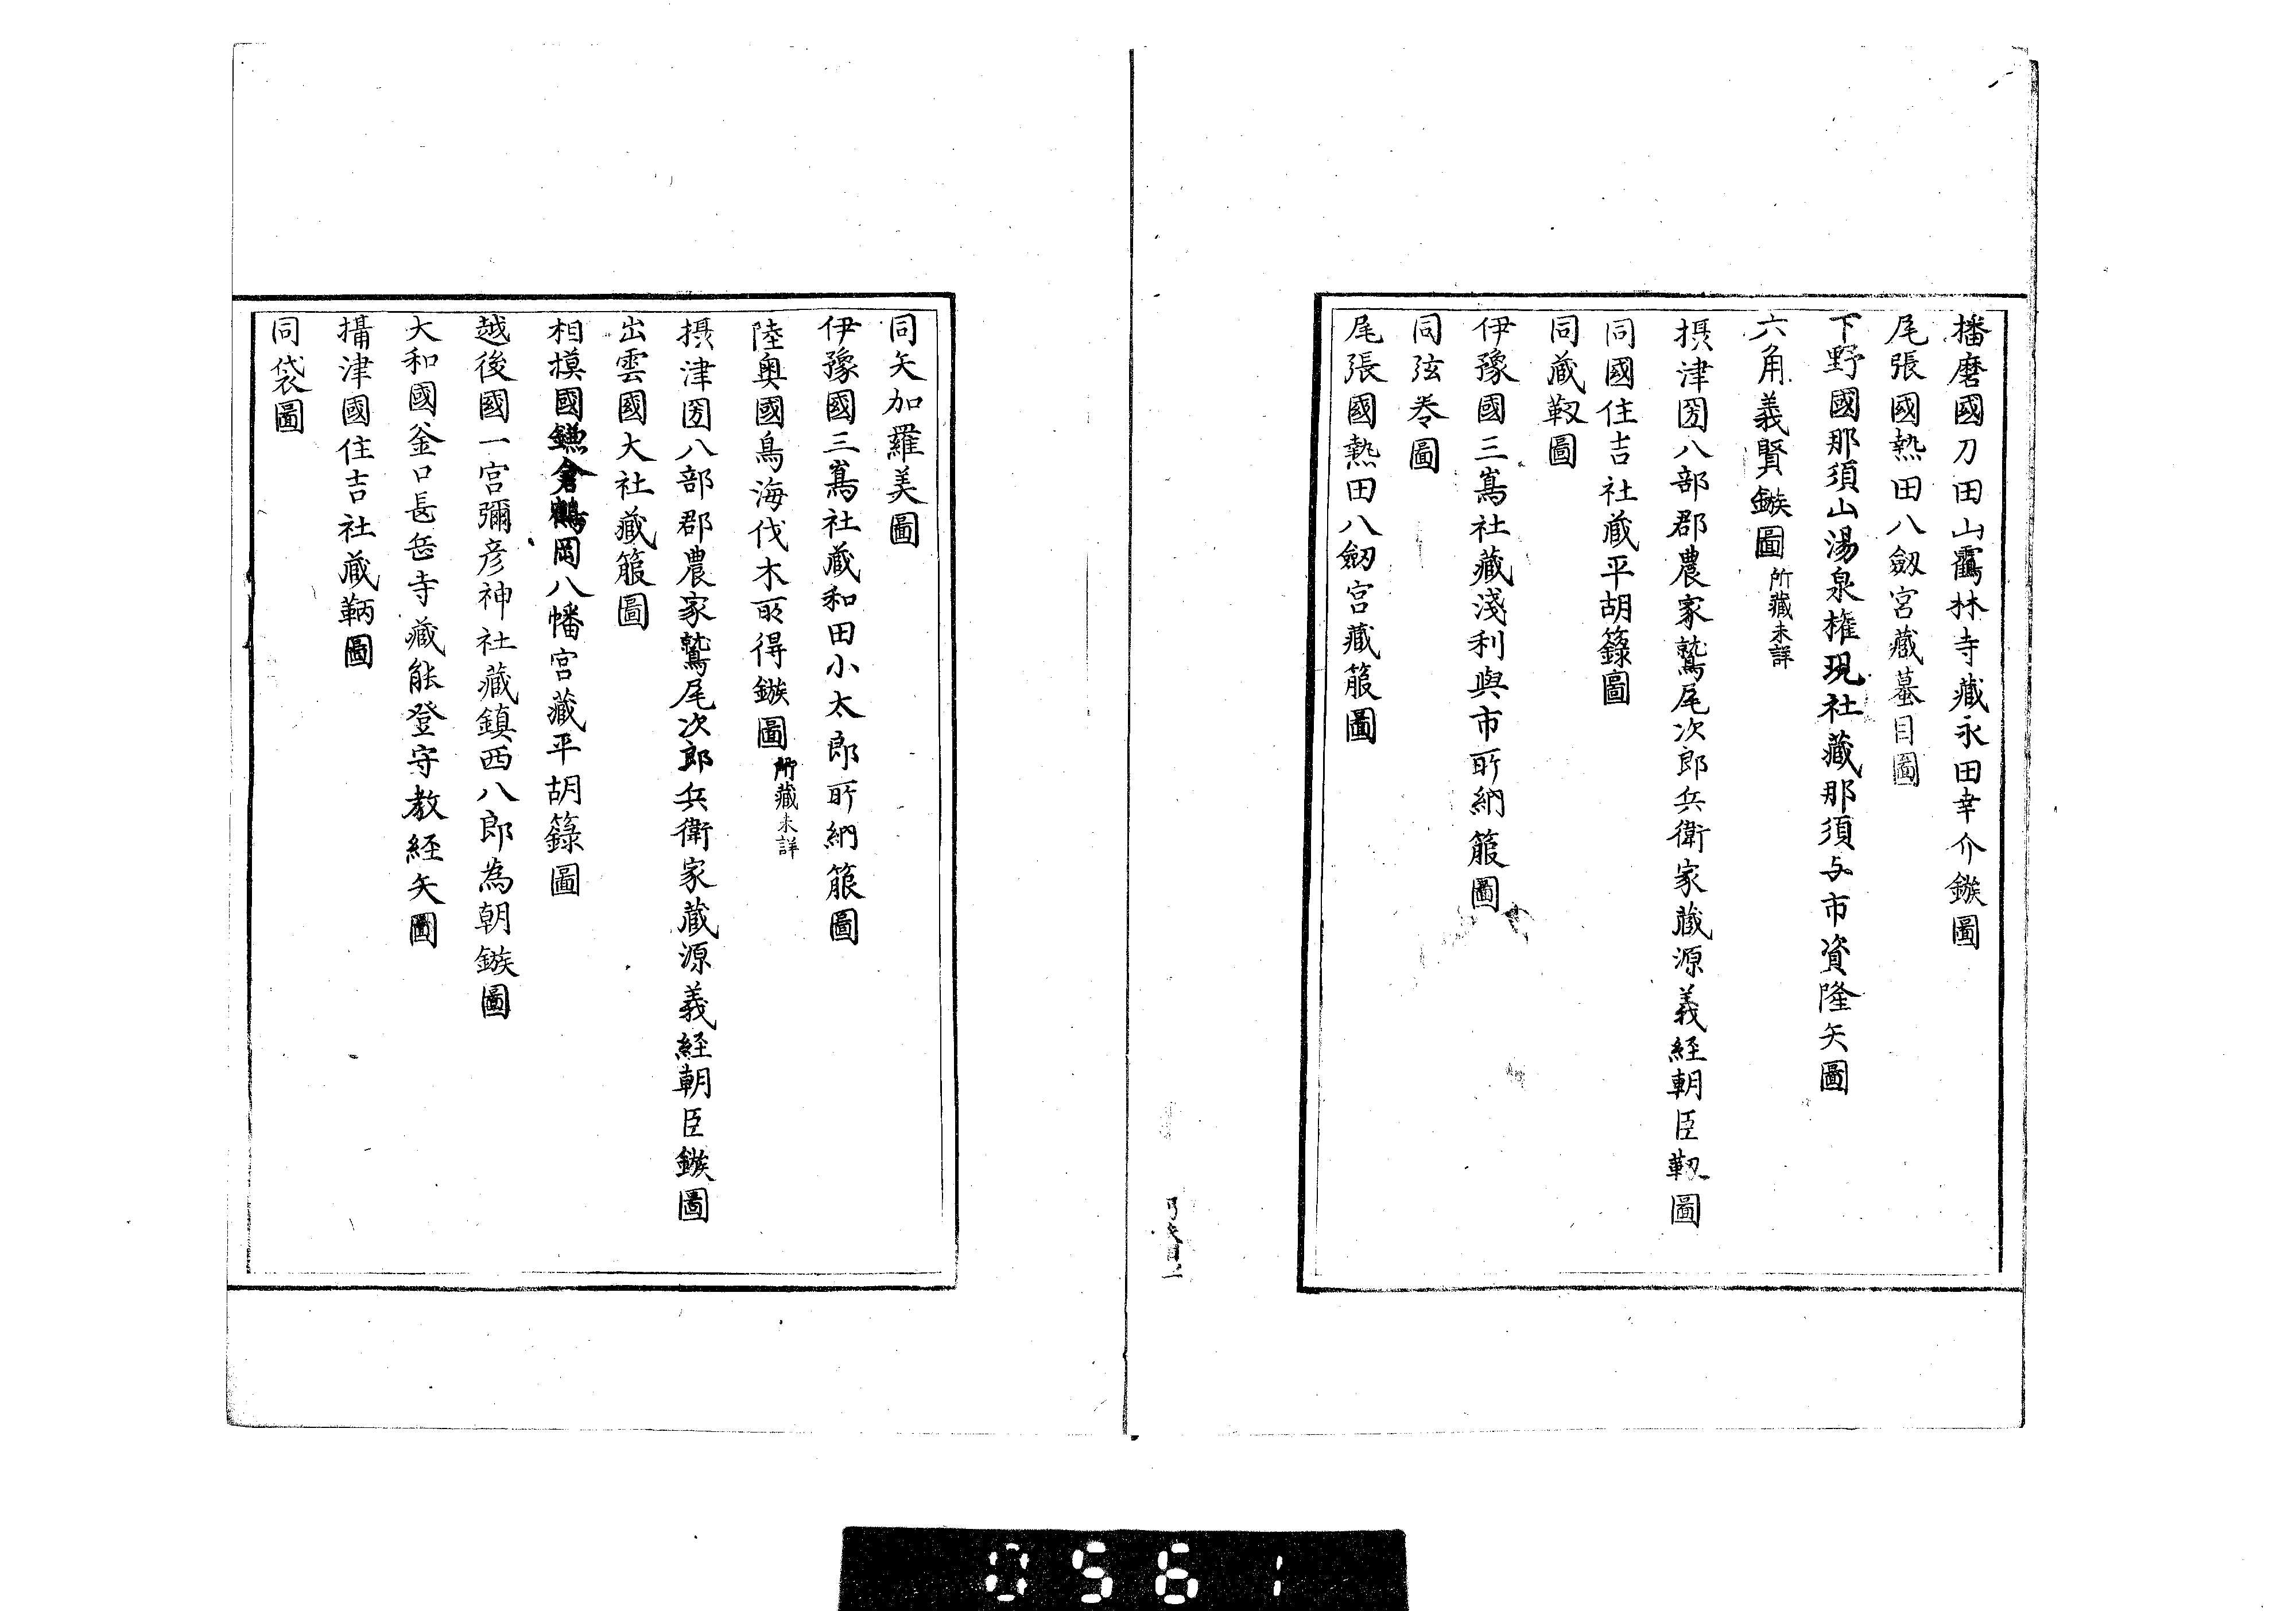 播磨國刀田山鶴林寺藏永田幸介鏃圖
尾張國熱田八劔宮藏墓目圖
下野國那須山湯泉権現社藏那須与市資隆矢圖
六角義賢鏃圖 所藏未詳
摂津圀八部郡農家鷲尾次郎兵衛家蔵源義経朝臣靫圖
同國住吉社蔵平胡籙圖
同蔵靫圖
伊豫國三嶌社藏淺利與市所納箙圖
同弦巻圖
尾張國熱田八劔宮藏箙圖
同矢加羅美圖
伊豫國三嶌社蔵和田小太郎所納箙圖
陸奥國鳥海伐木所得鏃圖 所藏未詳
摂津圀八部郡農家鷲尾次郎兵衛家蔵源義経朝臣鏃圖
出雲國大社藏箙圖
相摸國鎌倉鶴岡八幡宮藏平胡籙圖
越後國一宮彌彦神社藏鎮西八郎為朝鏃圖
大和國釜口長岳寺藏能登守教経矢圖
攝津國住吉社蔵鞆圖
同袋圖
0561